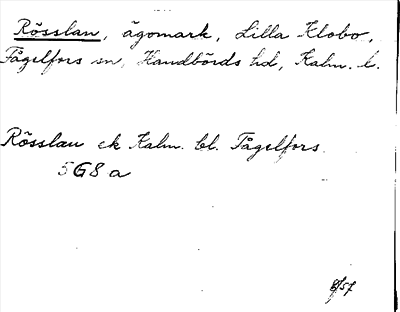 Rösslan, ägomark, Lilla Klobo,
Fågelfors sn, Handbörds hd, Kalm. l.
Rösslan ek Kalm. bl. Fågelfors
5G8a